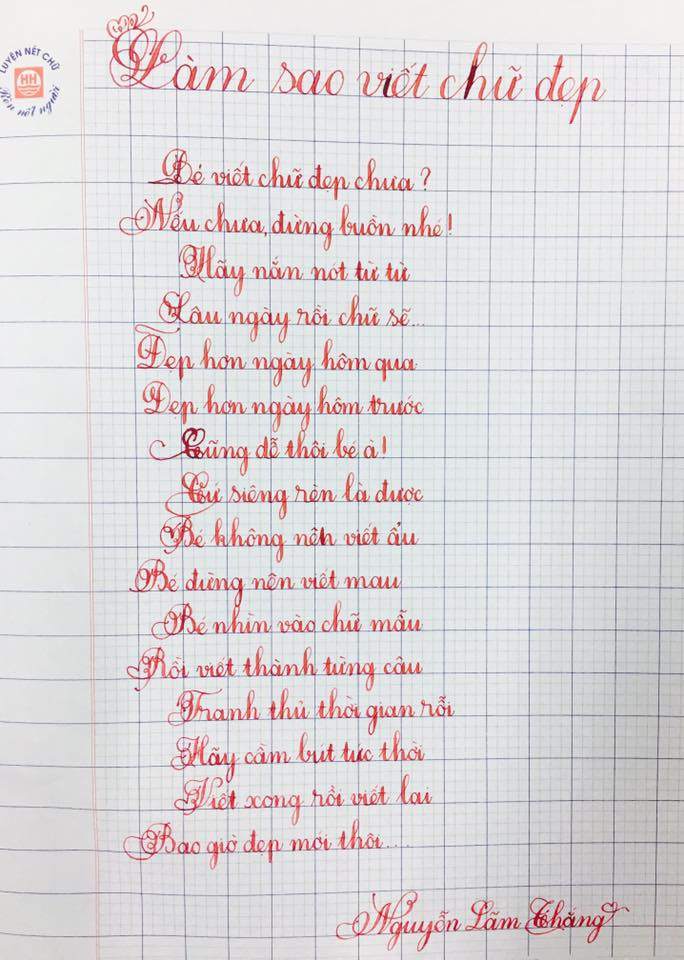 LUYỆN NÉT CHỮ
HH
Rèn nết người
Làm sao viết chữ đẹp
Bé viết chữ đẹp chưa?
Nếu chưa, đừng buồn nhé!
Hãy nắn nót từ từ
Lâu ngày rồi chữ sẽ...
Đẹp hơn ngày hôm qua
Đẹp hơn ngày hôm trước
Cũng dễ thôi bé à!
Cứ siêng rèn là được
Bé không nên viết ẩu
Bé đừng nên viết mau
Bé nhìn vào chữ mẫu
Rồi viết thành từng câu
Tranh thủ thời gian rỗi
Hãy cầm bút tức thời
Viết xong rồi viết lại
Bao giờ đẹp mới thôi....
Nguyễn Lãm Thắng